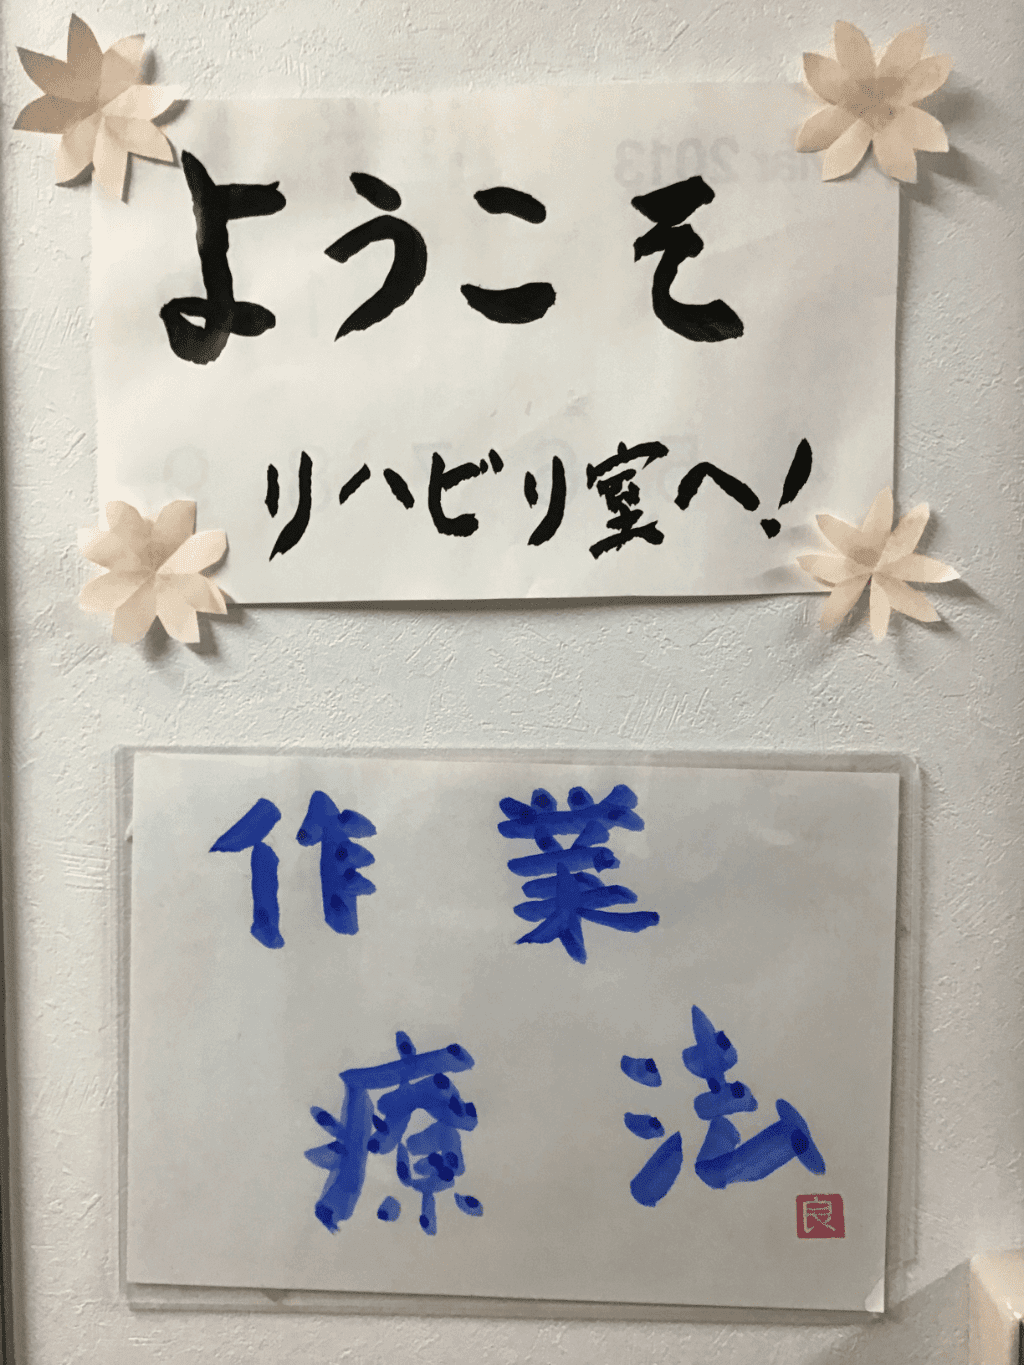 ようこそ
リハビリ室へ!
作業
療法
良